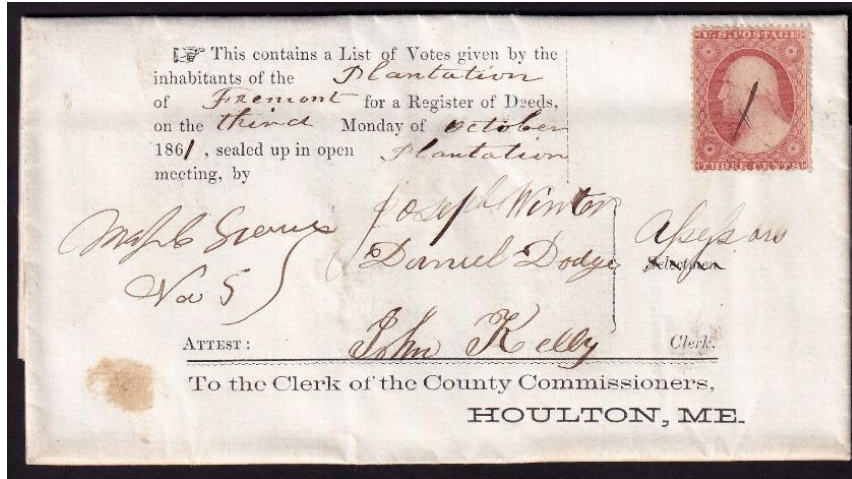 U.S. POSTAGE
THREE CENTS
☞ This contains a List of Votes given by the
inhabitants of the Plantation
of Fremont for a Register of Deeds,
on the third Monday of October
1861, sealed up in open Plantation
meeting, by
Maple Grove
Nov 5
Joseph Winter
Daniel Dodge
Assessors
Selectmen
ATTEST: John Kelly Clerk.
To the Clerk of the County Commissioners,
HOULTON, ME.